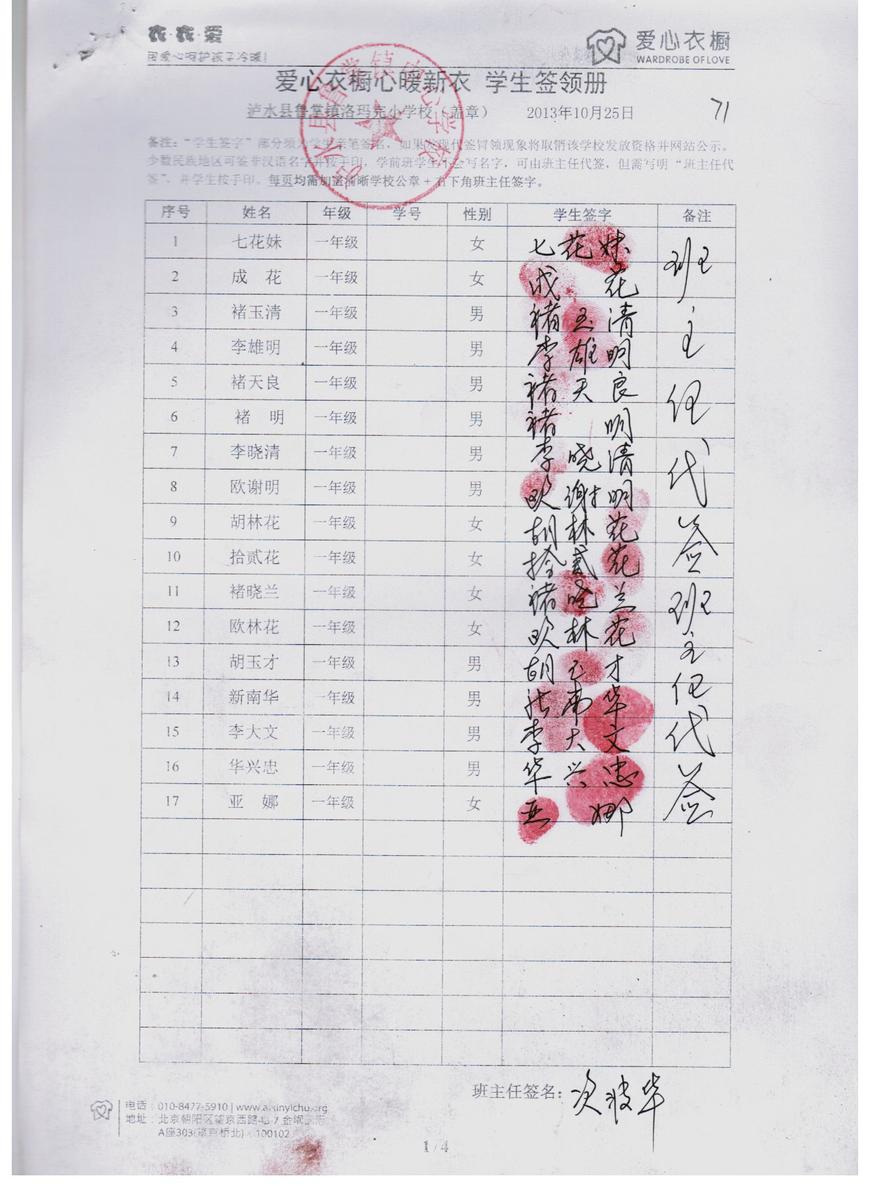 衣·衣·爱
用爱心呵护孩子冷暖！
爱心衣橱
WARDROBE OF LOVE
爱心衣橱心暖新衣 学生签领册
泸水县鲁掌镇洛玛克小学校（盖章） 2013年10月25日
71
备注：“学生签字”部分须为学生亲笔签名，如果发现代签冒领现象将取消该学校发放资格并网站公示。
少数民族地区可签非汉语名字并按手印，学前班学生不会写名字，可由班主任代签，但需写明“班主任代
签”，并学生按手印。每页均需加盖清晰学校公章＋右下角班主任签字。
序号 姓名 年级 学号 性别 学生签字 备注
1 七花妹 一年级 女 七花妹
2 成 花 一年级 女 成花
3 褚玉清 一年级 男 褚玉清
4 李雄明 一年级 男 李雄明
5 褚天良 一年级 男 褚天良
6 褚 明 一年级 男 褚明
7 李晓清 一年级 男 李晓清
8 欧谢明 一年级 男 欧谢明
9 胡林花 一年级 女 胡林花
10 拾贰花 一年级 女 拾贰花
11 褚晓兰 一年级 女 褚晓兰
12 欧林花 一年级 女 欧林花
13 胡玉才 一年级 男 胡玉才
14 新南华 一年级 男 南华
15 李大文 一年级 男 李大文
16 华兴忠 一年级 男 华兴忠
17 亚 娜 一年级 女 亚娜
班主任代签
班主任代签
班主任签名：
电话：010-8477-5910 | www.aixinyichu.org
地址：北京朝阳区望京西路
A座303(望京桥北) 100102
1 / 4